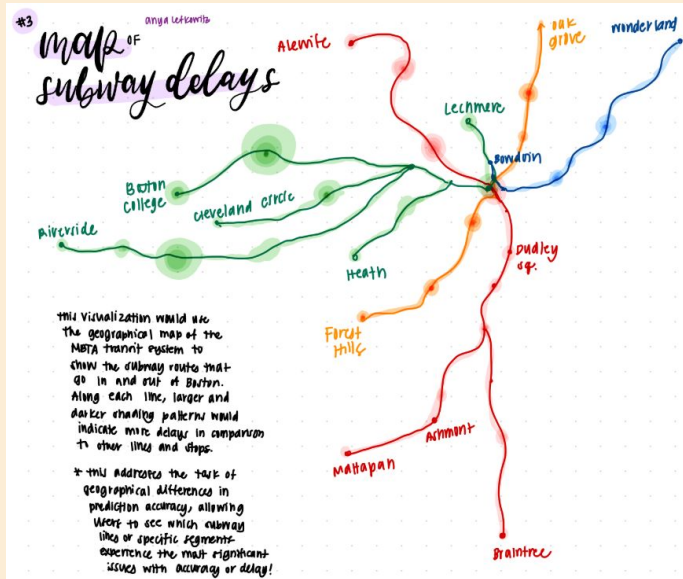 #3
anya lefkowitz
map OF
subway delays
Alewife
oak
grove
wonderland
Lechmere
Bowdoin
Boston
College
Cleveland Circle
Riverside
Heath
Dudley
sq.
Forest
Hills
Ashmont
Mattapan
Braintree
this visualization would use
the geographical map of the
MBTA transit system to
show the subway routes that
go in and out of Boston.
Along each line, larger and
darker shading patterns would
indicate more delays in comparison
to other lines and stops.
* this addresses the task of
geographical differences in
prediction accuracy, allowing
users to see which subway
lines or specific segments
experience the most significant
issues with accuracy or delay!